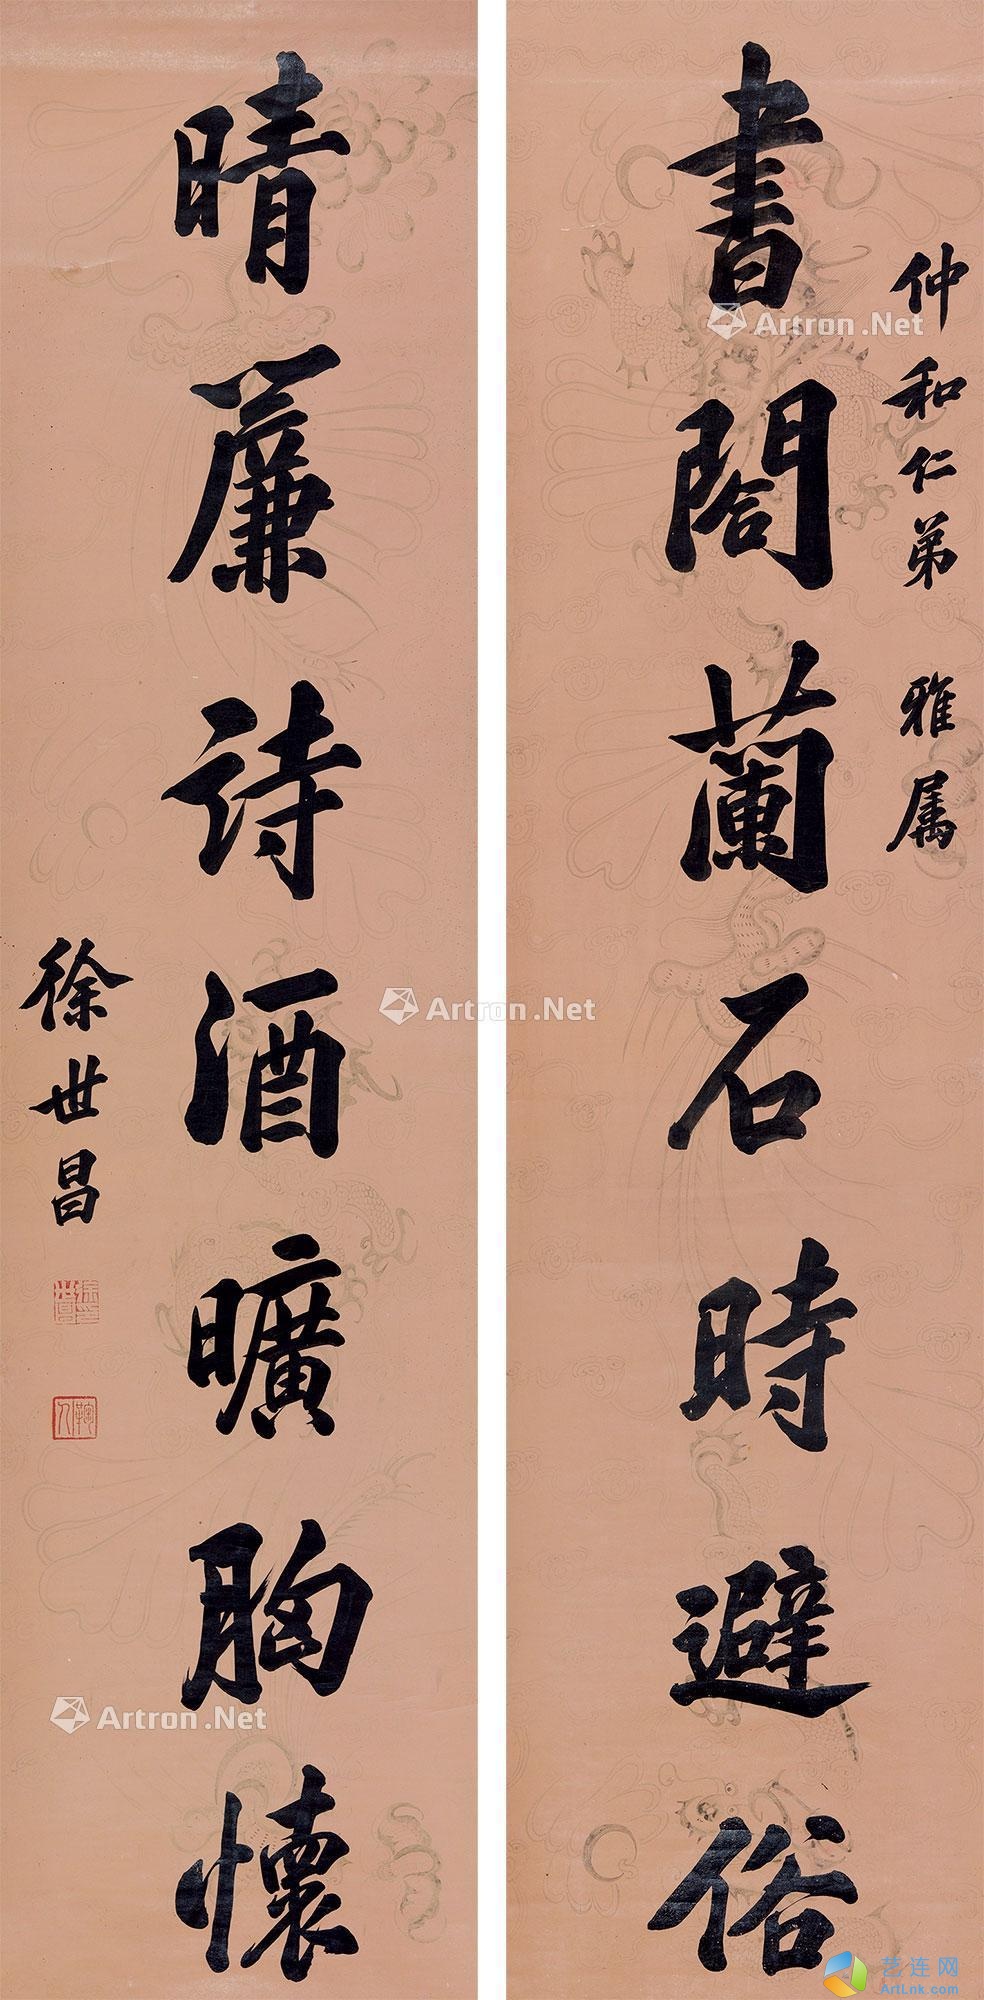 仲和仁弟 雅属
書閣蘭石時避俗
晴廉詩酒曠胸懷
徐世昌
Artron.Net
Artron.Net
Artron.Net
艺连网
ArtLnk.com